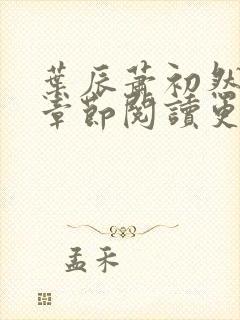 葉辰蕭初然
章節閱讀更
孟禾